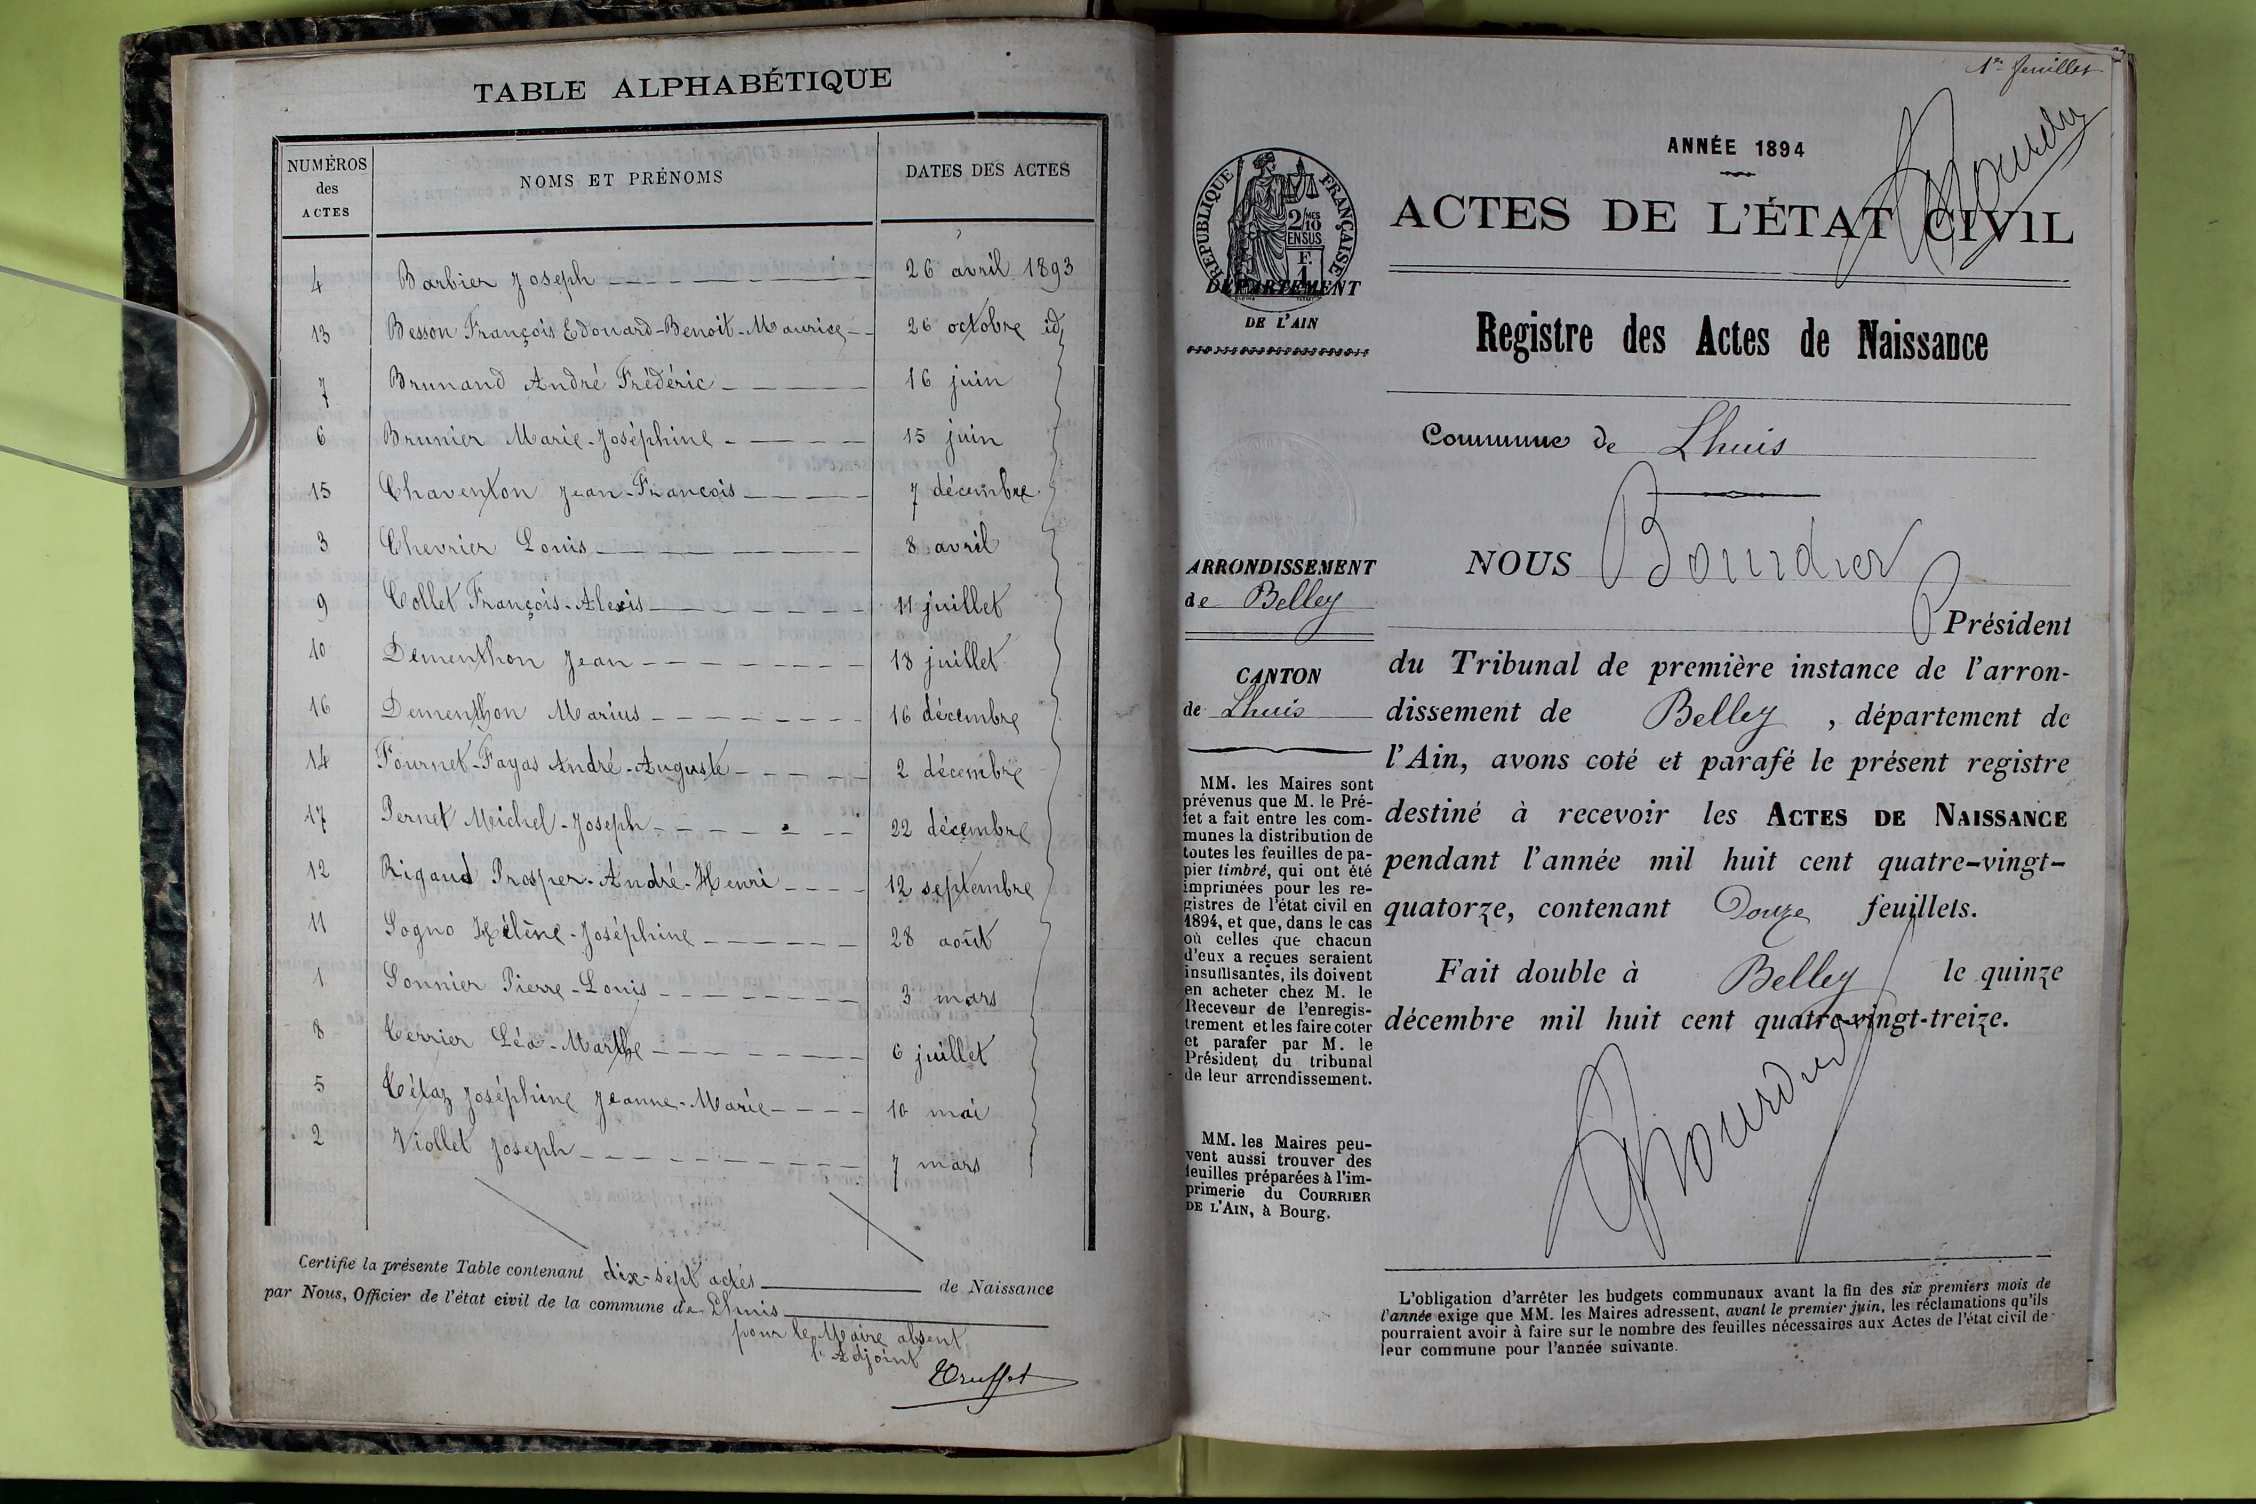 TABLE ALPHABÉTIQUE
NUMÉROS des ACTES
NOMS ET PRÉNOMS
DATES DES ACTES
4 Barbier Joseph 26 avril 1893
13 Besson François Edouard-Benoit-Maurice 26 octobre id
7 Brunand André Frédéric 16 juin
6 Brunier Marie-Joséphine 15 juin
15 Chaventon Jean-François 7 décembre
3 Chevrier Louis 8 avril
9 Collet François-Alexis 11 juillet
10 Dementhon Jean 13 juillet
16 Dementhon Marius 16 décembre
14 Fournet-Fayas André-Auguste 2 décembre
17 Pernet Michel-Joseph 22 décembre
12 Rigaud Prosper-André-Henri 12 septembre
11 Sogno Hélène-Joséphine 28 août
1 Sonnier Pierre-Louis 3 mars
8 Terrier Léa-Marthe 6 juillet
5 Tétaz Joséphine Jeanne-Marie 10 mai
2 Viollet Joseph 7 mars
Certifié la présente Table contenant dix-sept actes de Naissance
par Nous, Officier de l'état civil de la commune de Lhuis
pour le Maire absent
l'Adjoint
Truffet
1er feuillet
Bourdier
ANNÉE 1894
ACTES DE L'ÉTAT CIVIL
RÉPUBLIQUE FRANÇAISE
2/10 MES
EN SUS
F.
1
DÉPARTEMENT
DE L'AIN
Registre des Actes de Naissance
Commune de Lhuis
ARRONDISSEMENT
de Belley
CANTON
de Lhuis
MM. les Maires sont
prévenus que M. le Pré-
fet a fait entre les com-
munes la distribution de
toutes les feuilles de pa-
pier timbré, qui ont été
imprimées pour les re-
gistres de l'état civil en
1894, et que, dans le cas
où celles que chacun
d'eux a reçues seraient
insuffisantes, ils doivent
en acheter chez M. le
Receveur de l'enregis-
trement et les faire coter
et parafer par M. le
Président du tribunal
de leur arrondissement.
MM. les Maires peu-
vent aussi trouver des
feuilles préparées à l'im-
primerie du COURRIER
DE L'AIN, à Bourg.
NOUS Bourdier
Président
du Tribunal de première instance de l'arron-
dissement de Belley, département de
l'Ain, avons coté et parafé le présent registre
destiné à recevoir les ACTES DE NAISSANCE
pendant l'année mil huit cent quatre-vingt-
quatorze, contenant Douze feuillets.
Fait double à Belley le quinze
décembre mil huit cent quatre-vingt-treize.
Bourdier
L'obligation d'arrêter les budgets communaux avant la fin des six premiers mois de
l'année exige que MM. les Maires adressent, avant le premier juin, les réclamations qu'ils
pourraient avoir à faire sur le nombre des feuilles nécessaires aux Actes de l'état civil de
leur commune pour l'année suivante.